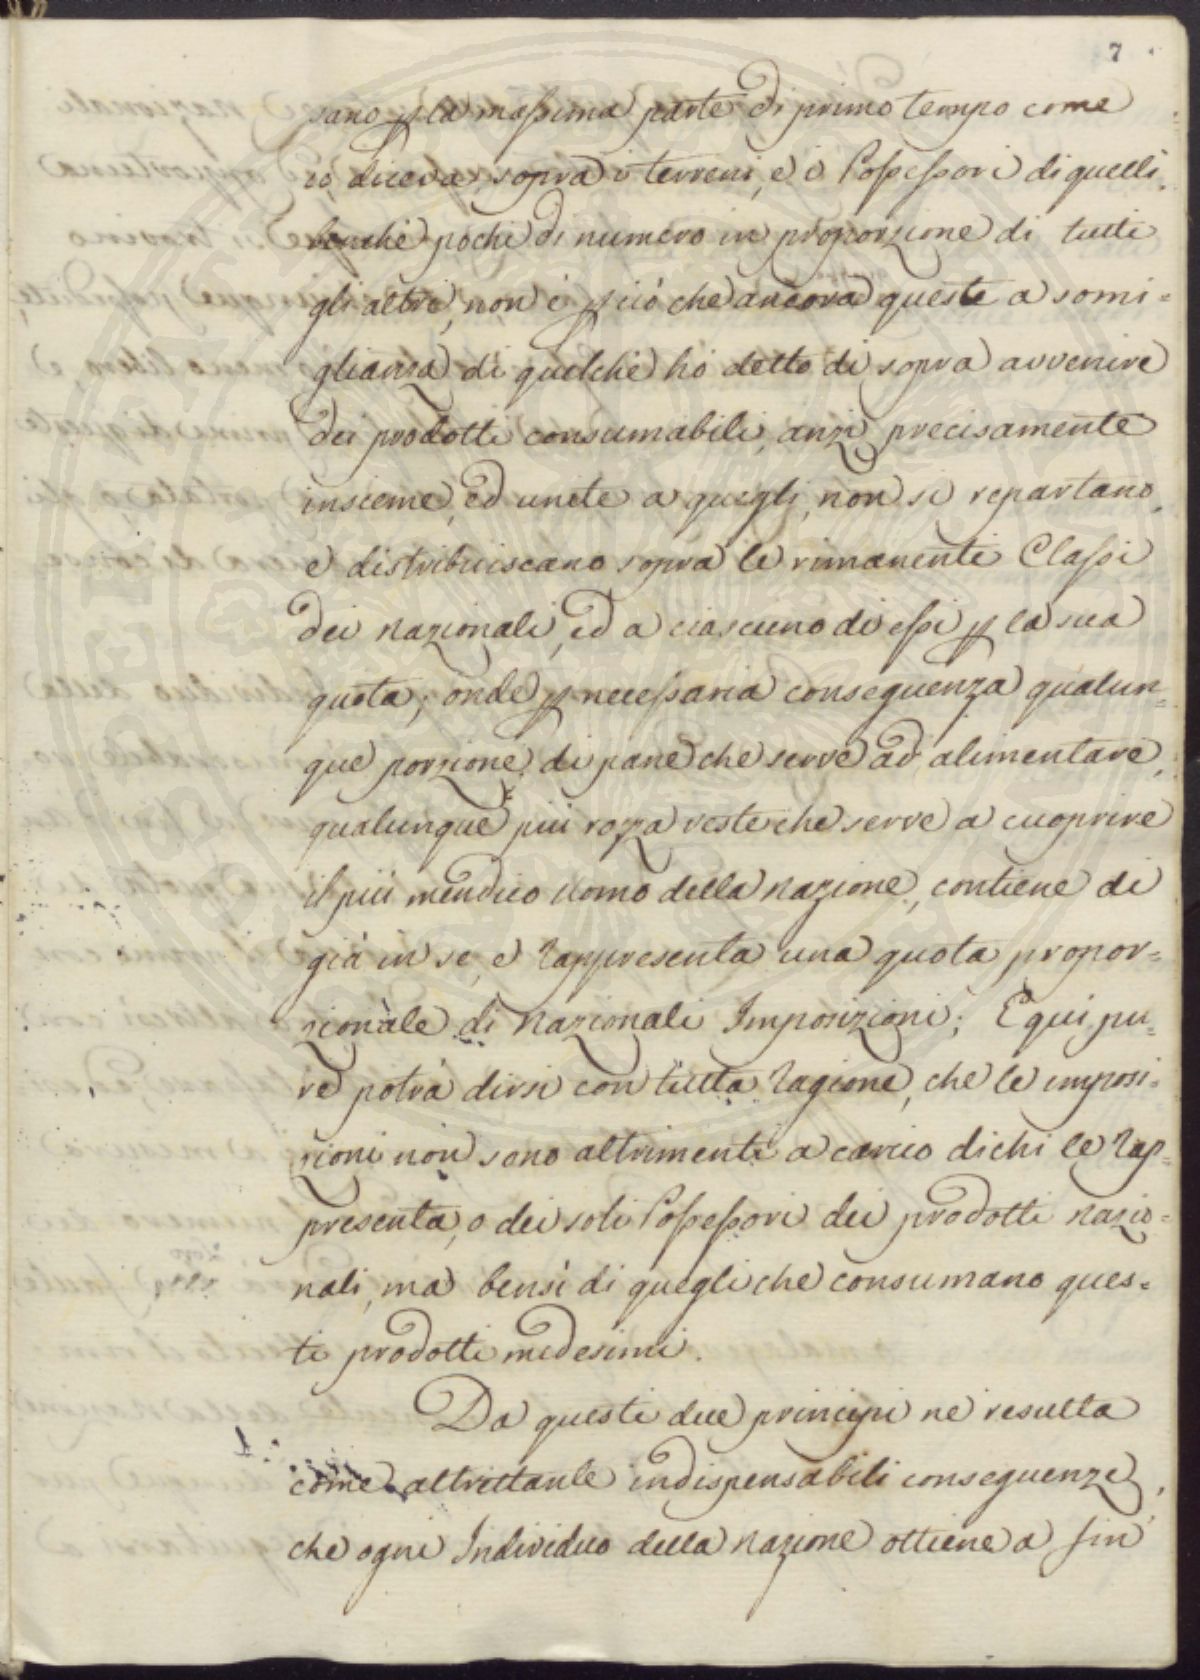 7
sano p la massima parte di primo tempo come
io diceva sopra i terreni, e i Possessori di quelli,
benchè pochi di numero in proporzione di tutti
gli altri, non è p ciò che ancora queste a somi=
glianza di quelchè hò detto di sopra avvenire
dei prodotti consumabili, anzi precisamente
insieme, ed unite a quegli, non si repartano,
e distribuiscano sopra le rimanenti Classi
dei nazionali, ed a ciascuno di essi p la sua
quota; onde p necessaria conseguenza qualun=
que porzione di pane che serve ad alimentare,
qualunque più rozza veste che serve a cuoprire
il più mendico uomo della nazione, contiene di
già in se, e rappresenta una quota propor=
zionale di Nazionali Imposizioni; E qui pu=
re potrà dirsi con tutta ragione, che le imposi=
zioni non sono altrimenti a carico di chi le rap=
presenta, o dei soli Possessori dei prodotti nazio=
nali, ma bensì di quegli che consumano ques=
ti prodotti medesimi.
Da questi due principj ne resulta
come altrettante indispensabili conseguenze,
che ogni Individuo della nazione ottiene a fin